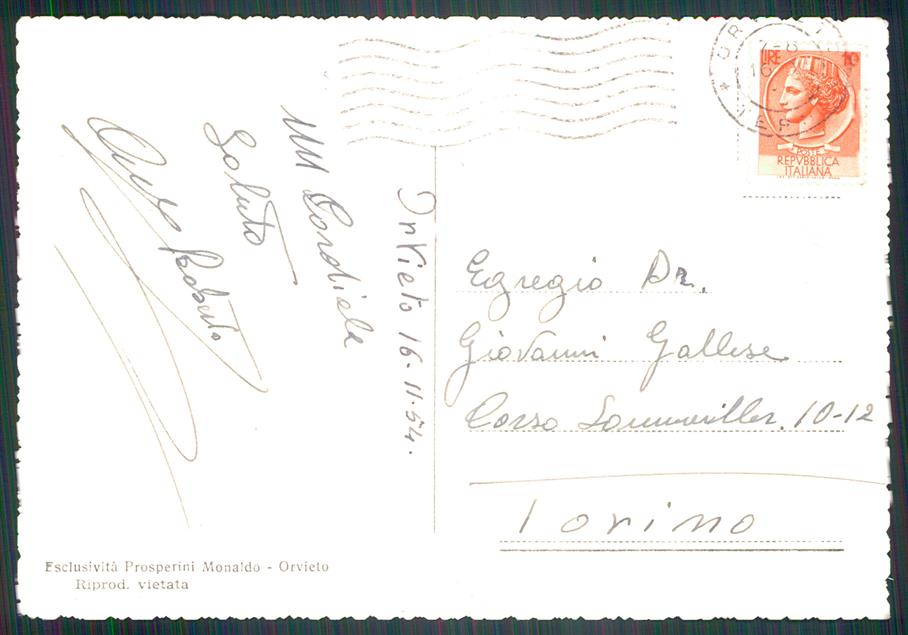 Orvieto 16-11-54.
Un Cordiale
Saluto
Roberto
Egregio Dr.
Giovanni Gallese
Corso Sommeiller. 10-12
Torino
LIRE 10
POSTE
REPVBBLICA
ITALIANA
Esclusività Prosperini Monaldo - Orvieto
Riprod. vietata